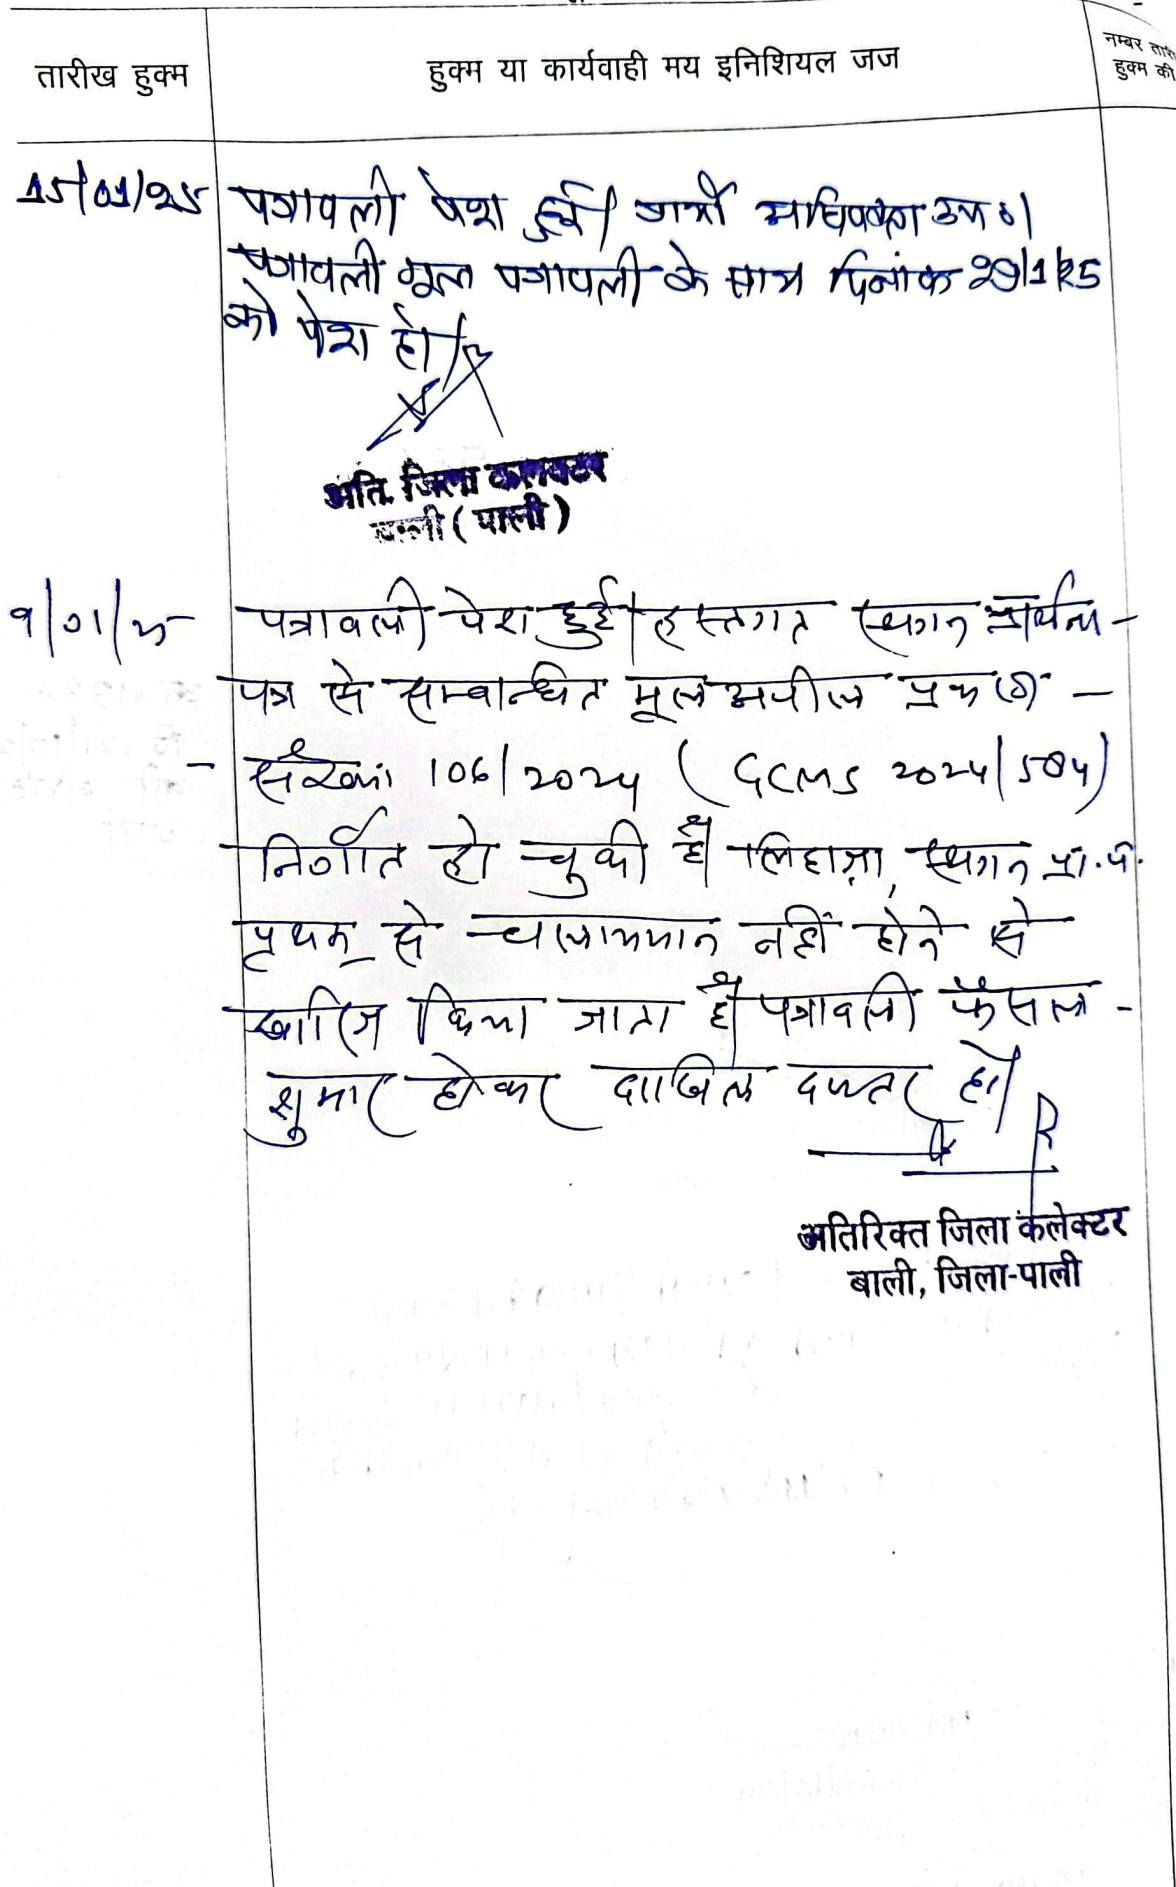 तारीख हुक्म
हुक्म या कार्यवाही मय इनिशियल जज
नम्बर तारी
हुक्म की
15/01/25 पत्रावली पेश हुई। प्रार्थी अधिवक्ता उप०।
पत्रावली मूल पत्रावली के साथ दिनांक 29/1/25
को पेश हो।
अति. जिला कलक्टर
बाली (पाली)
पत्रावली पेश हुई। हस्तगत स्थगन प्रार्थना-
पत्र से सम्बन्धित मूल अपील प्रकरण -
- संख्या 106/2024 ( GCMS 2024/584)
निर्णीत हो चुकी है। लिहाज़ा, स्थगन प्रा.प.
पृथक से चलायमान नहीं होने से
खारिज किया जाता है। पत्रावली फैसल -
शुमार होकर दाखिल दफ्तर हो।
अतिरिक्त जिला कलेक्टर
बाली, जिला-पाली